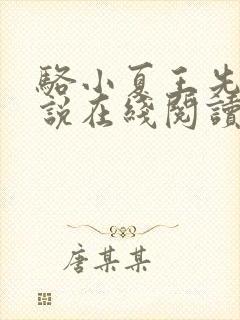 駱小夏王先
說在綫閱讀
唐某某